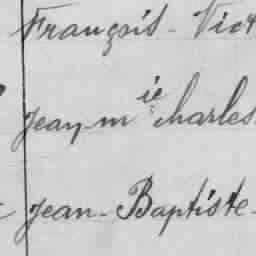 François - Vict
Jean m ie Charles
Jean - Baptiste -